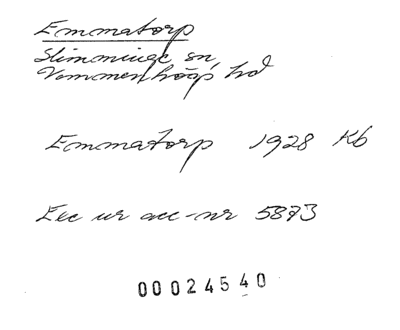 Emmatorp
Slimminge sn,
Vemmenhögs hd
Emmatorp 1928 Kb
Exc ur acc-nr 5873
00024540